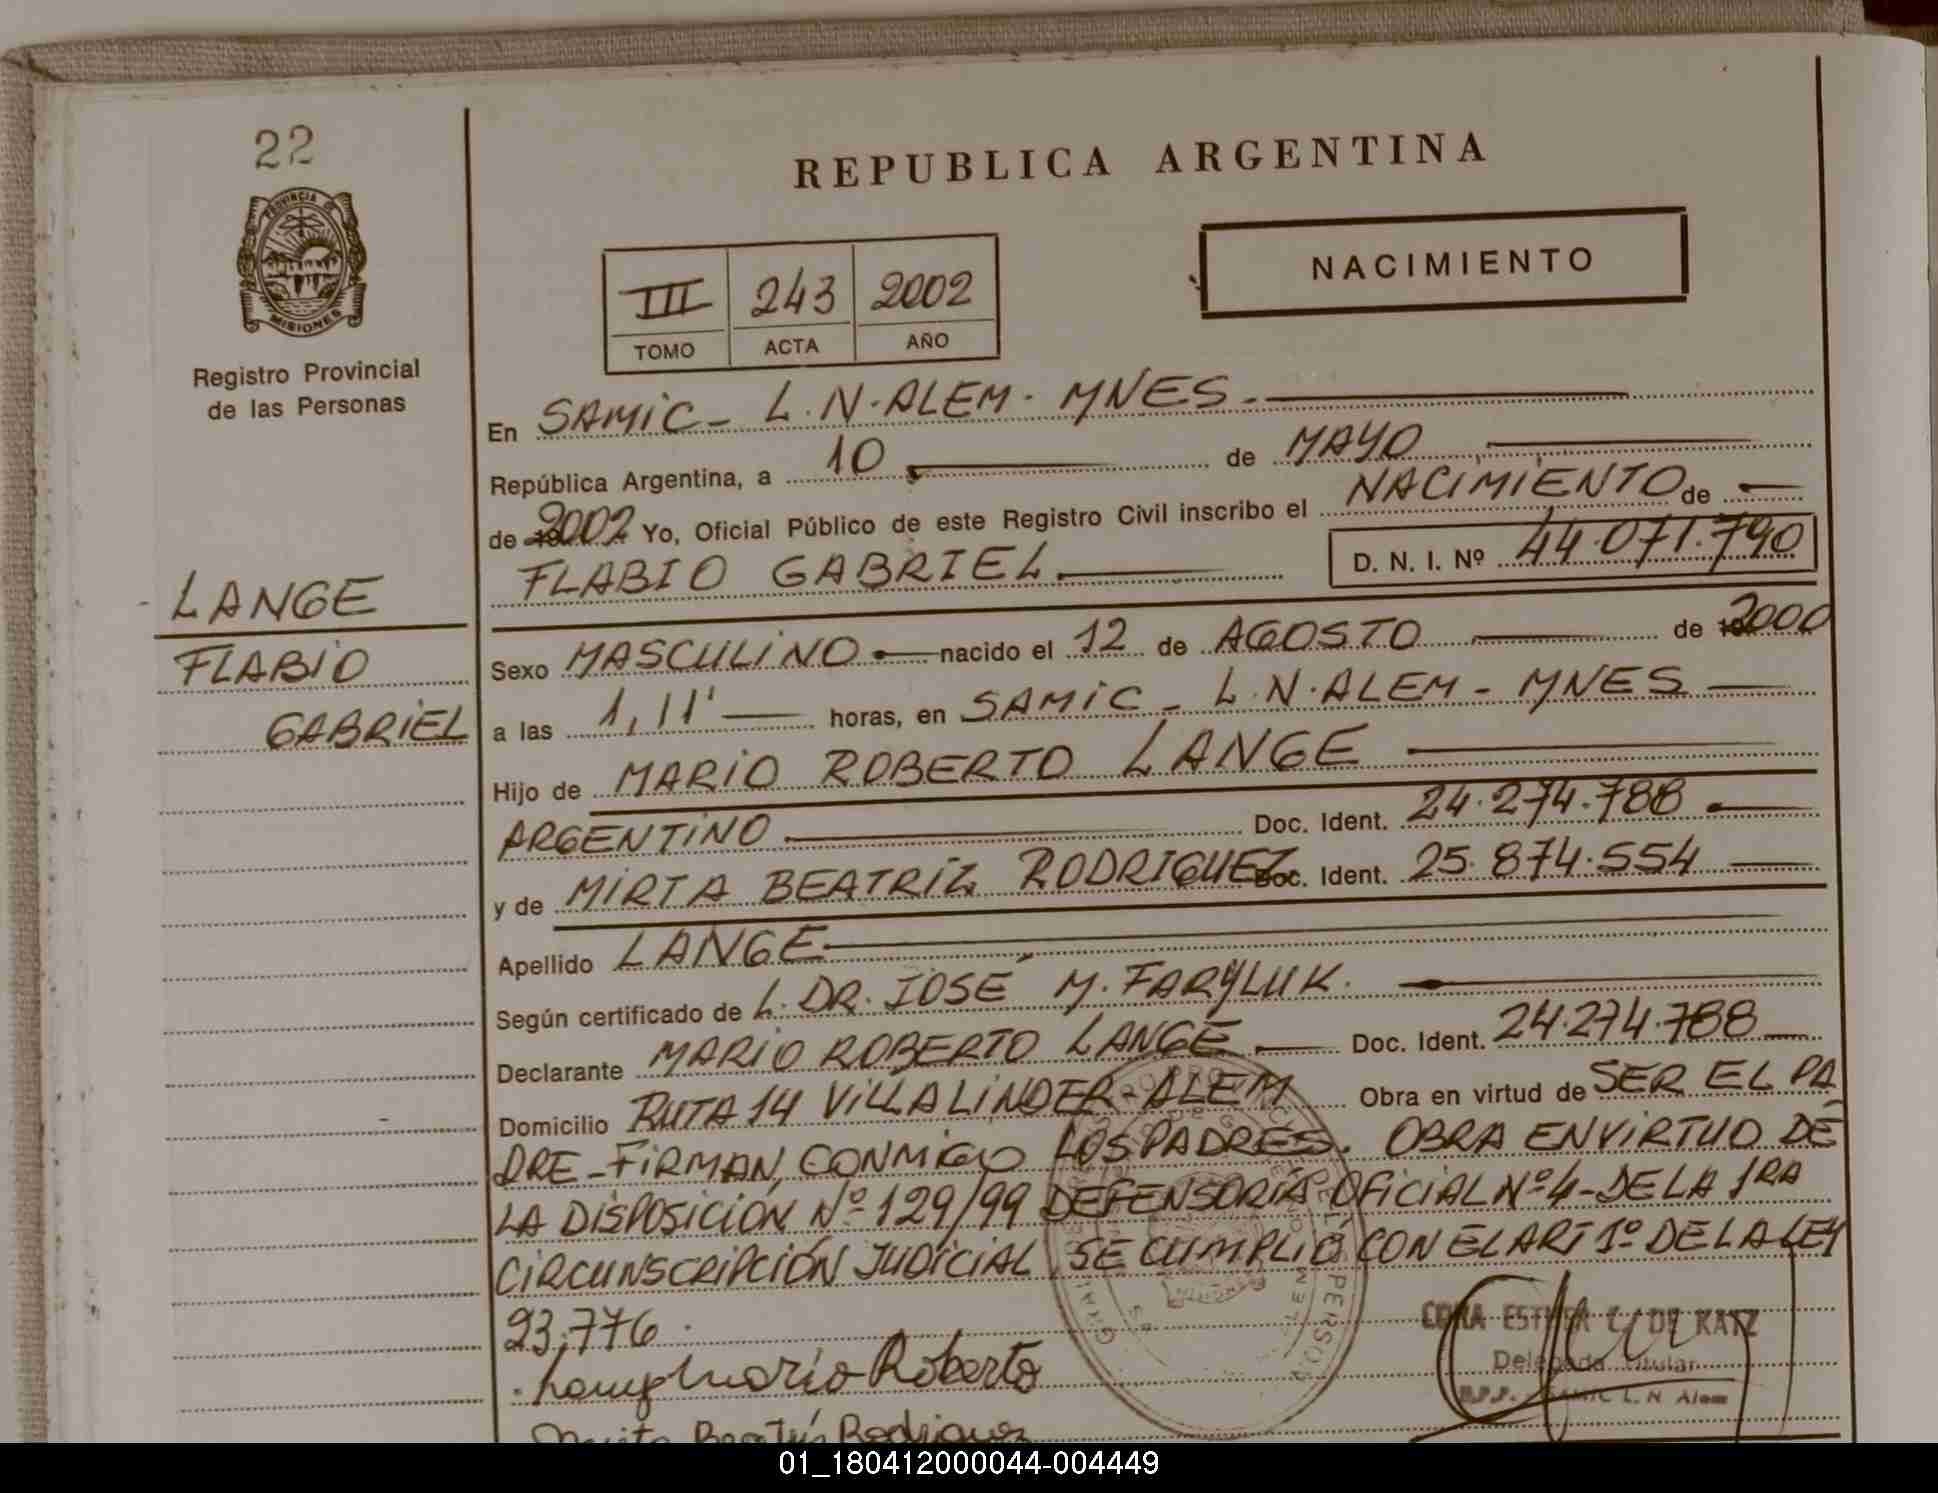 22
PROVINCIA DE
MISIONES
Registro Provincial
de las Personas
LANGE
FLABIO
GABRIEL
REPUBLICA ARGENTINA
NACIMIENTO
III 243 2002
TOMO ACTA AÑO
En SAMIC - L.N. ALEM - MNES.
República Argentina, a 10 de MAYO
de 2002 Yo, Oficial Público de este Registro Civil inscribo el NACIMIENTO de
FLABIO GABRIEL D. N. I. Nº 44.071.790
Sexo MASCULINO nacido el 12 de AGOSTO de 2000
a las 1,11' horas, en SAMIC - L.N. ALEM - MNES
Hijo de MARIO ROBERTO LANGE
ARGENTINO Doc. Ident. 24.274.788
y de MIRTA BEATRIZ RODRIGUEZ Doc. Ident. 25.874.554
Apellido LANGE
Según certificado de L. DR. JOSÉ M. FARYLUK.
Declarante MARIO ROBERTO LANGE Doc. Ident. 24.274.788
Domicilio RUTA 14 VILLA LINDER - ALEM Obra en virtud de SER EL PA
DRE - FIRMAN, CONMIGO LOS PADRES. OBRA EN VIRTUD DE
LA DISPOSICIÓN Nº 129/99 DEFENSORÍA OFICIAL Nº 4 - DE LA 1RA
CIRCUNSCRIPCIÓN JUDICIAL, SE CUMPLIÓ CON EL ART 1º DE LA LEY
23.776.
Mario Roberto
DE KATZ
Delegada Titular
SAMIC L. N. Alem
Beatriz Rodriguez
01_180412000044-004449